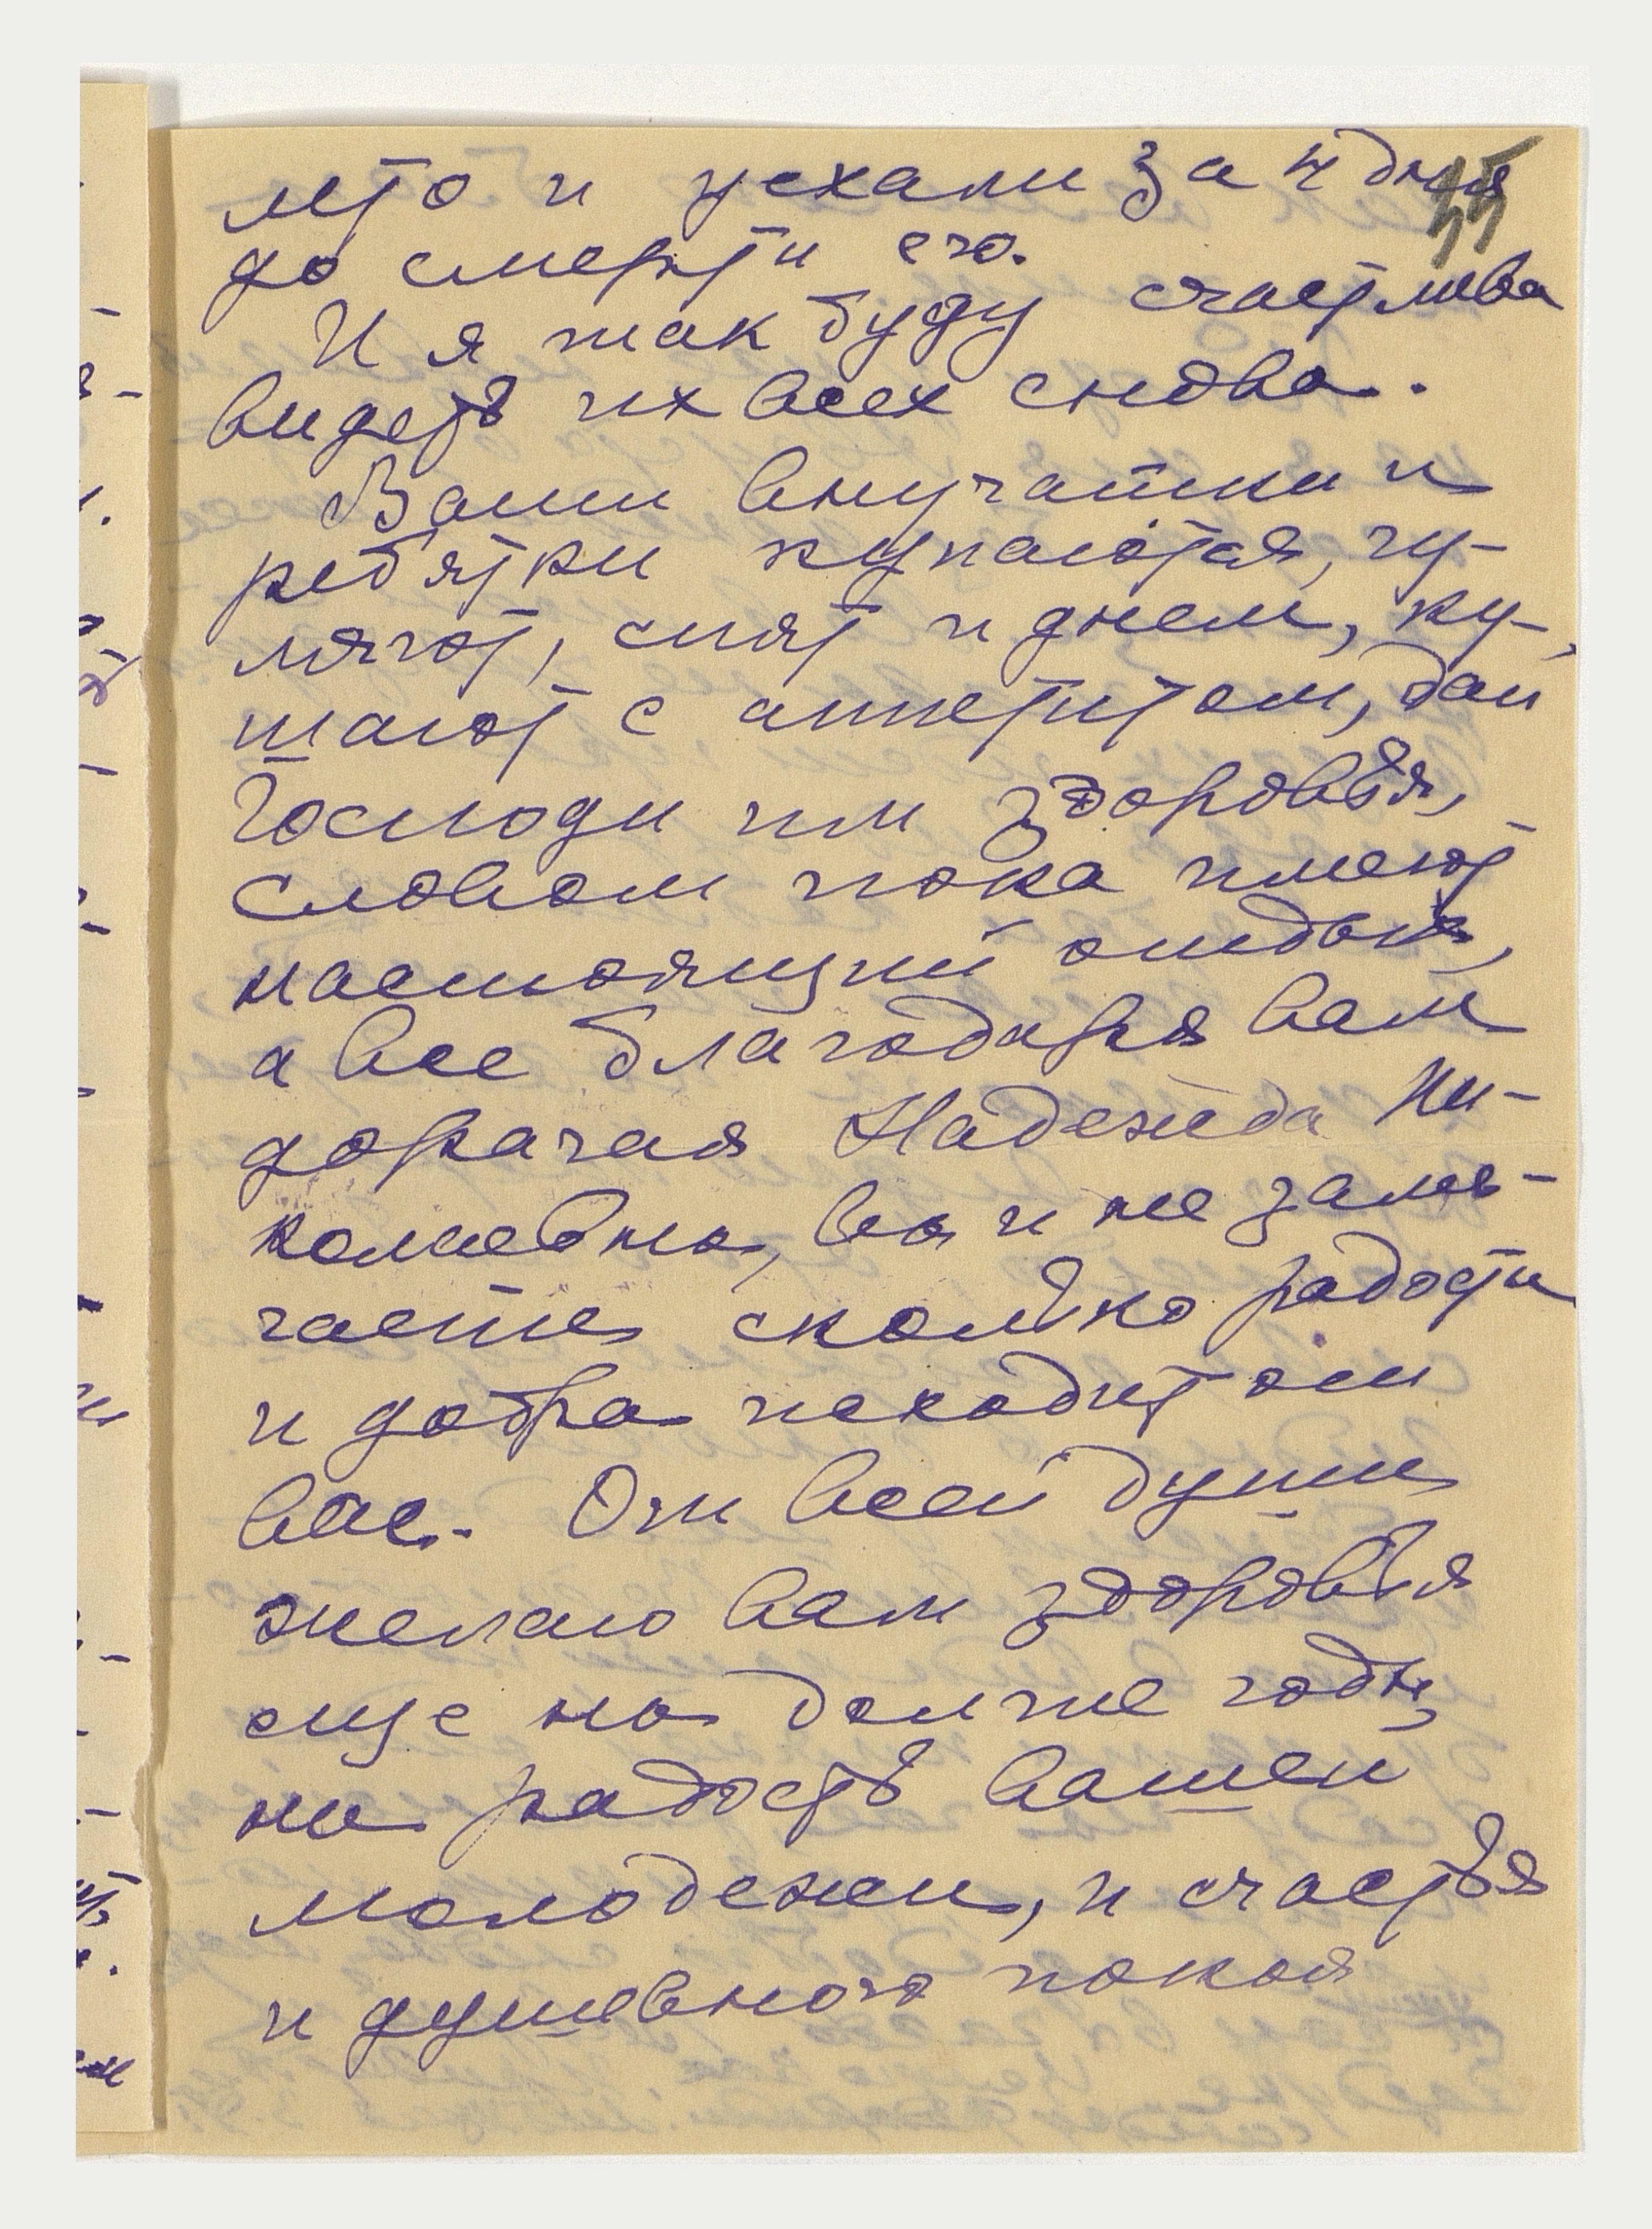 55
что и уехали за 4 дня
до смерти его.
И я так буду счастлива
видеть их всех снова.
Ваши внучатки и
ребятки купаются, гу-
ляют, спят и днем, ку-
шают с аппетитом, дай
Господи им здоровья,
словом пока имеют
настоящий отдых,
а все благодаря вам
дорогая Надежда Ни-
колаевна, вы и не заме-
чаете сколько радости
и добра исходит от
вас. От всей души
желаю вам здоровья
еще на долгие годы,
на радость вашей
молодежи, и счастья
и душевного покоя